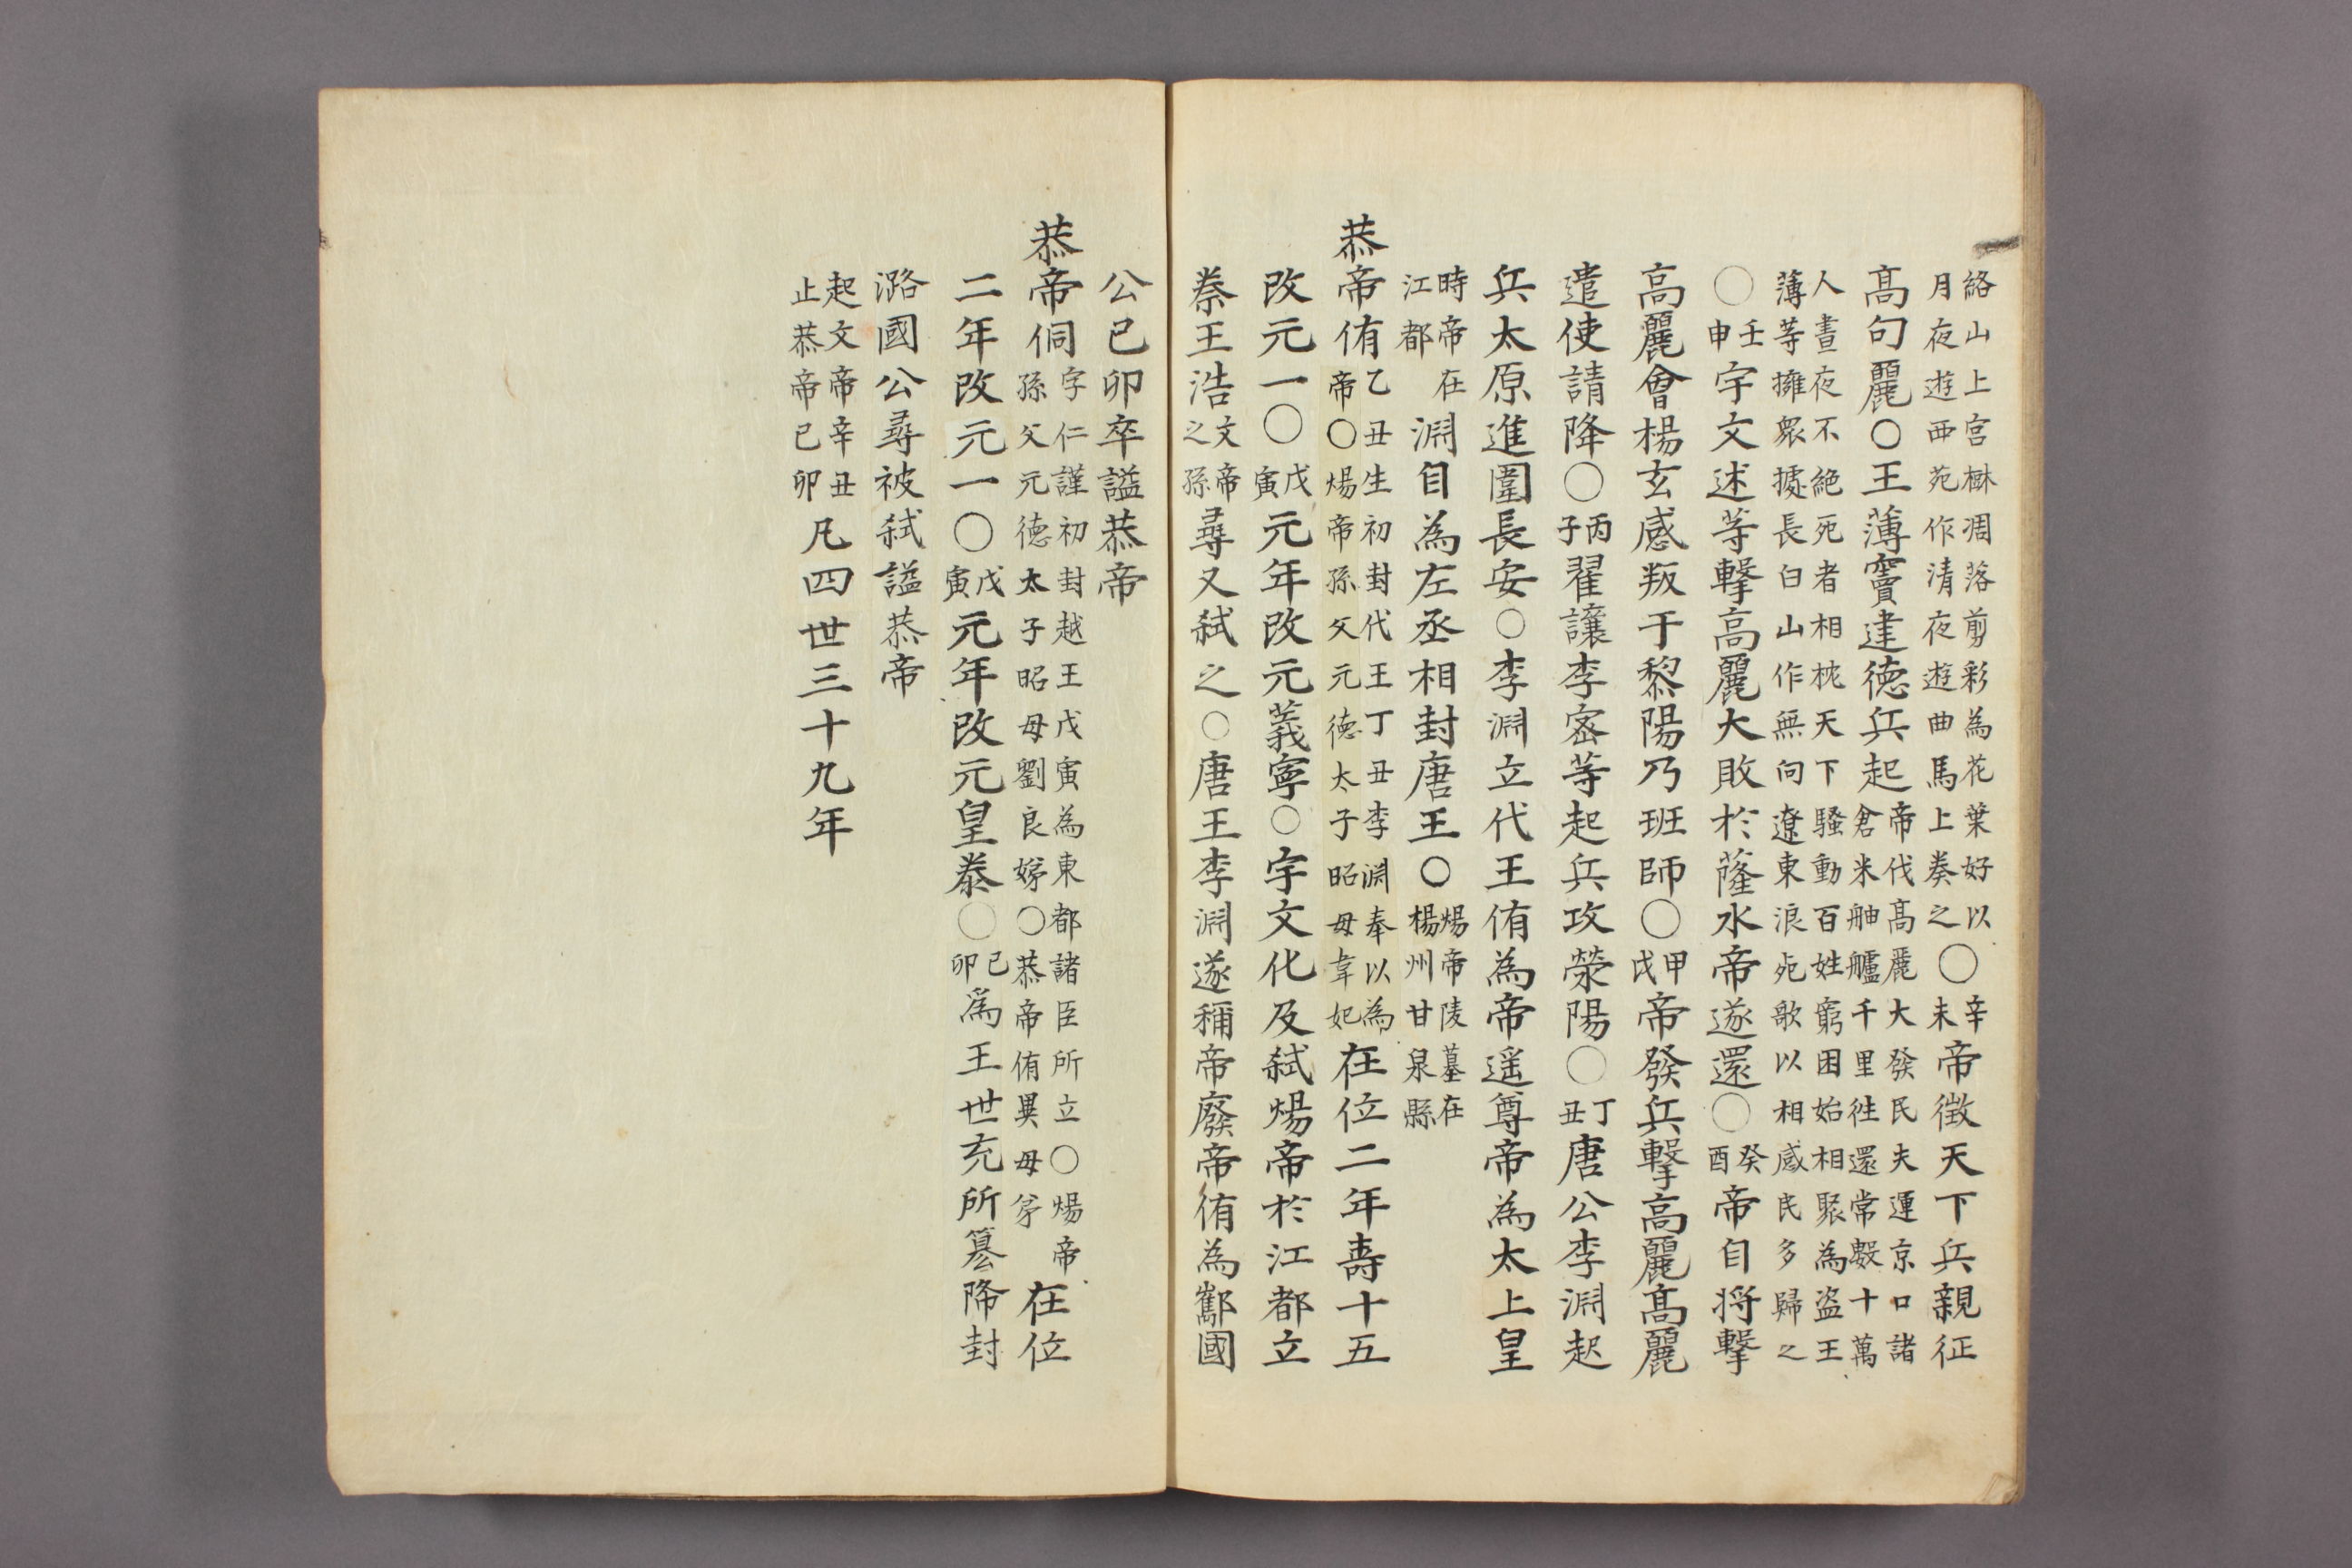 絡山上宮樹凋落剪彩為花葉好以月夜遊西苑作清夜遊曲馬上奏之〇辛未帝徵天下兵親征
高句麗〇王薄竇建德兵起帝伐高麗大發民夫運京口諸倉米舳艫千里徃還常數十萬
人晝夜不絶死者相枕天下騷動百姓窮困始相聚為盗王薄等擁衆據長白山作無向遼東浪死歌以相感民多歸之
〇壬申宇文述等擊高麗大敗於薩水帝遂還〇癸酉帝自将擊
高麗會楊玄感叛于黎陽乃班師〇甲戌帝發兵擊高麗高麗
遣使請降〇丙子翟讓李密等起兵攻滎陽〇丁丑唐公李淵起
兵太原進圍長安〇李淵立代王侑為帝遥尊帝為太上皇
時帝在江都淵自為左丞相封唐王〇煬帝陵墓在楊州甘泉縣
恭帝侑乙丑生初封代王丁丑李淵奉以為帝〇煬帝孫父元德太子昭母韋妃在位二年壽十五
改元一〇戊寅元年改元義寧〇宇文化及弑煬帝於江都立
秦王浩文帝之孫尋又弑之〇唐王李淵遂稱帝廢帝侑為酅國
公己卯卒謚恭帝
恭帝侗字仁謹初封越王戊寅為東都諸臣所立〇煬帝孫父元德太子昭母劉良娣〇恭帝侑異母㐨在位
二年改元一〇戊寅元年改元皇泰〇己卯爲王世充所簒降封
潞國公尋被弑謚恭帝
起文帝辛丑止恭帝己卯凡四世三十九年